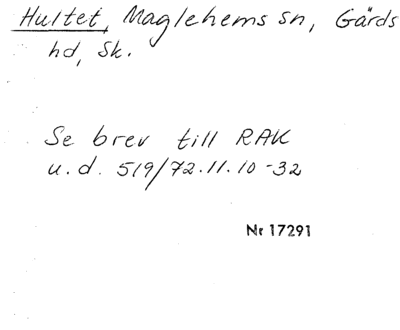 Hultet, Maglehems sn, Gärds
hd, Sk.
Se brev till RAK
u.d. 519/72.11.10-32
Nr 17291